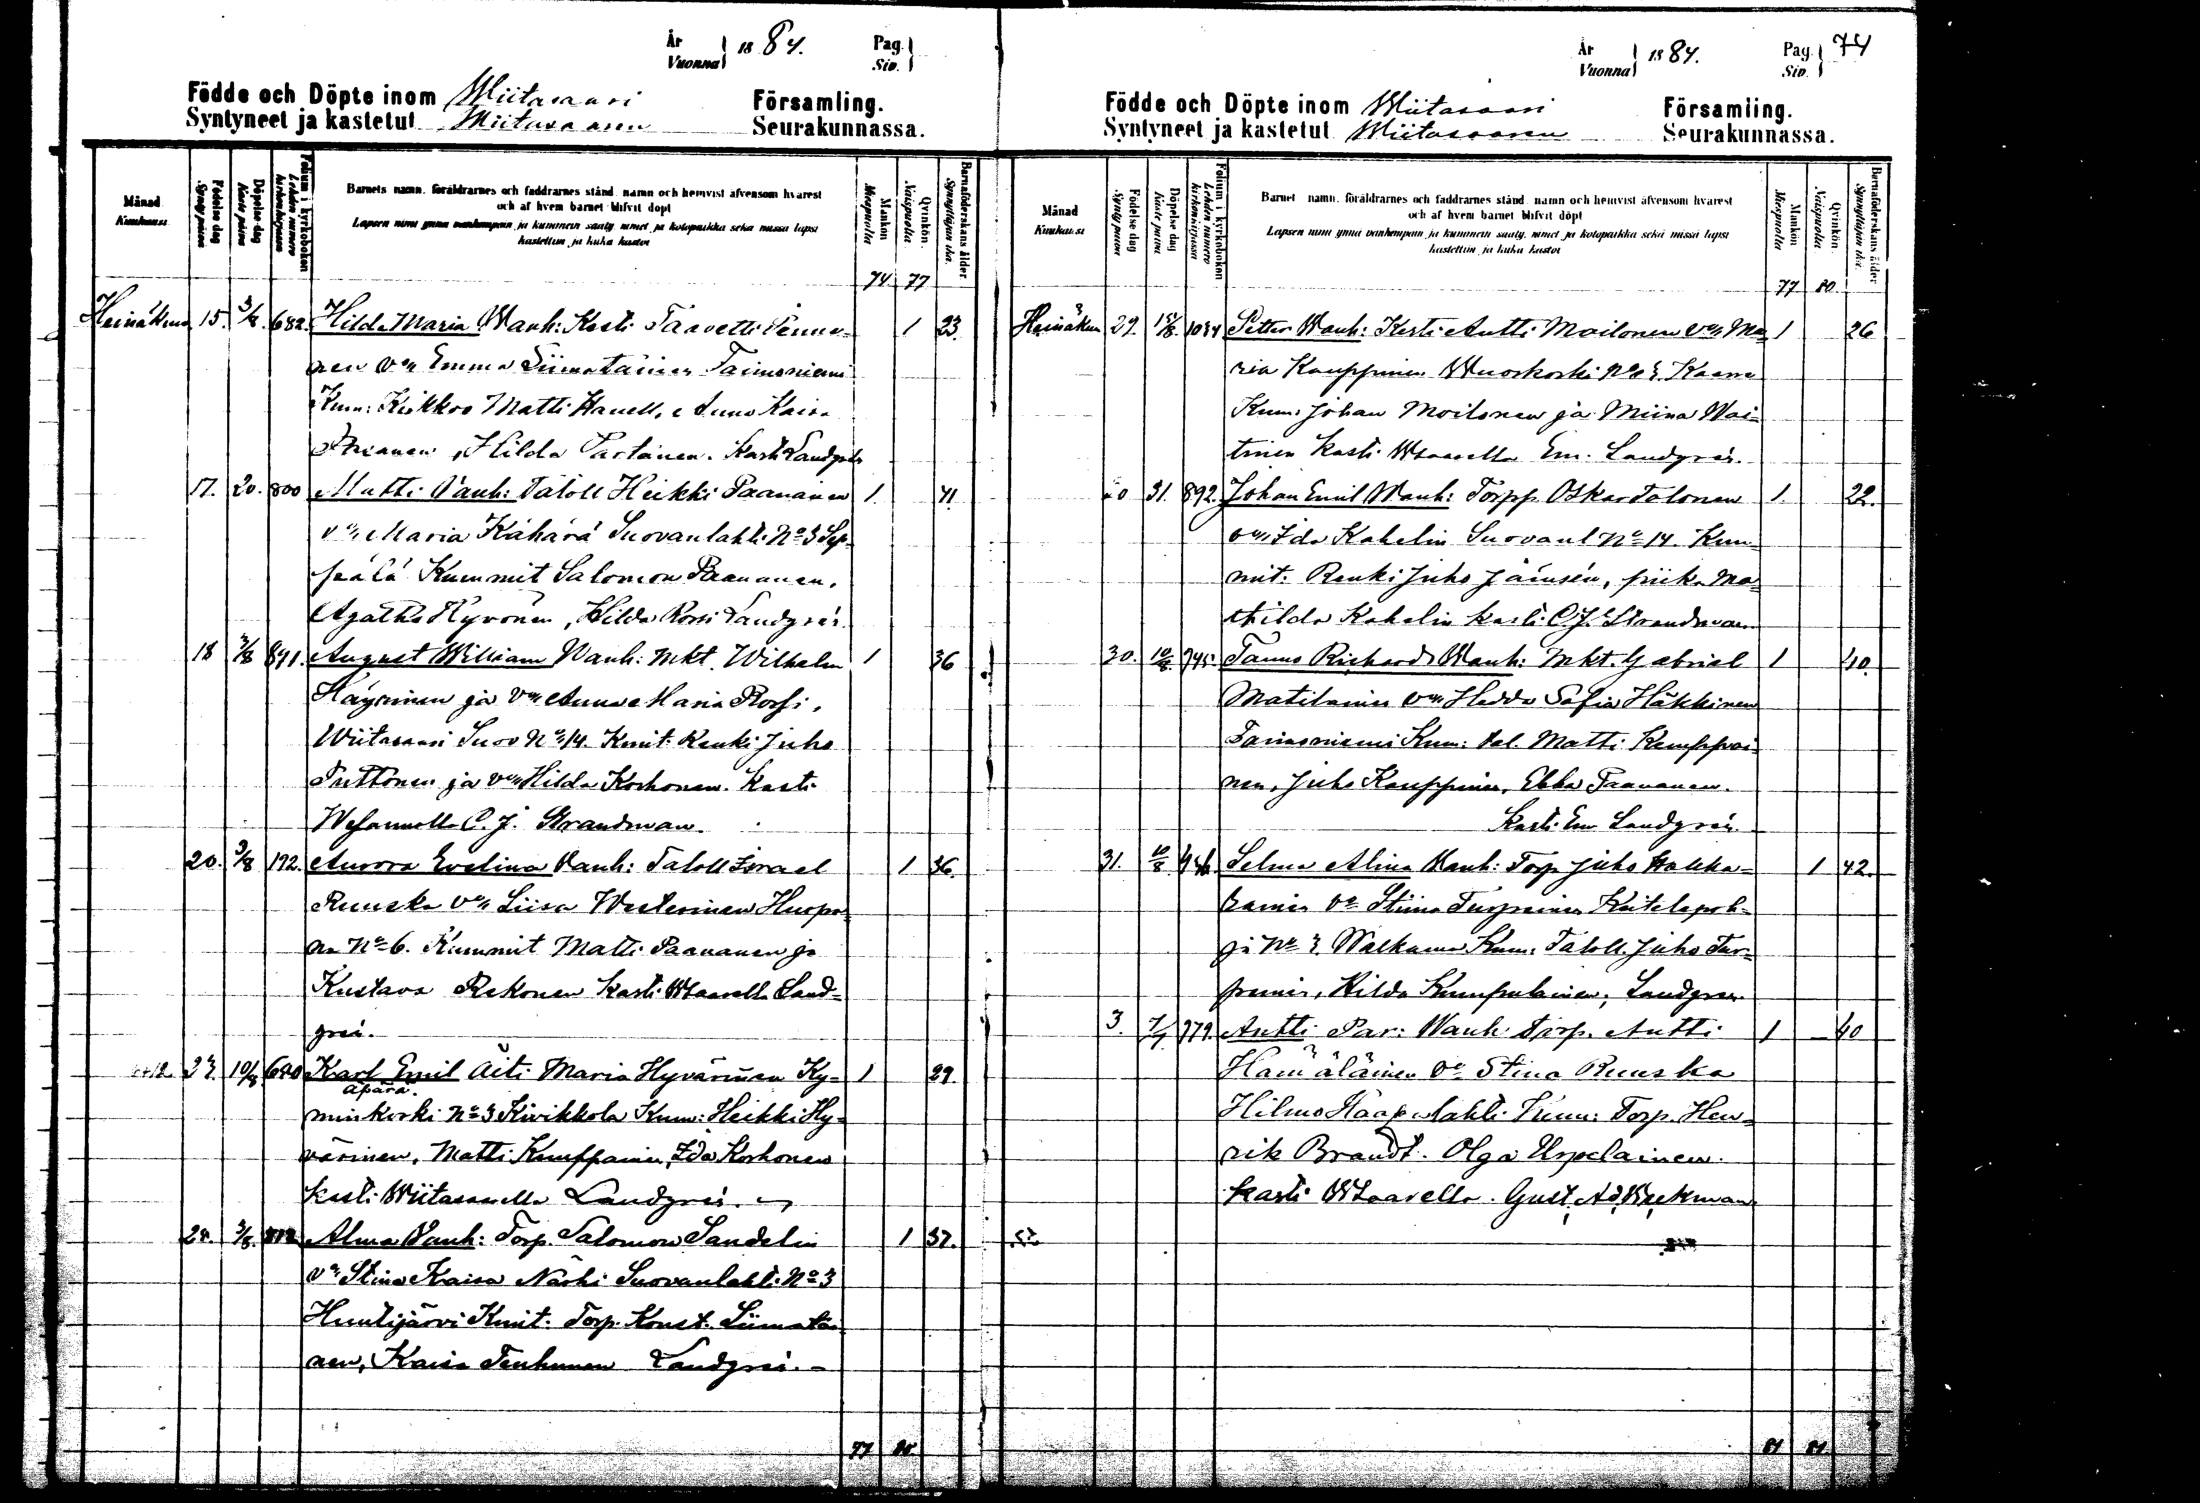 År Vuonna 1884. Pag. Siv.
Födde och Döpte inom Wiitasaari Församling.
Syntyneet ja kastetut Wiitasaaren Seurakunnassa.
Månad Kuukausi
Födelse dag Synty päivä
Döpelse dag Kaste päivä
Folium i kyrkoboken Lehden numero kirkonkirjassa
Barnets namn, föräldrarnes och faddrarnes stånd, namn och hemvist äfvensom hvarest
och af hvem barnet blifvit döpt
Lapsen nimi ynnä vanhempain ja kummein sääty, nimet ja kotopaikka sekä missä lapsi
kastettiin ja kuka kastoi
Mankön Miespuolia
Qvinkön Naispuolia
Barnaföderskans ålder Synnyttäjän ikä
74 77
Heinäkuu 15. 3/8. 682. Hilda Maria Wanh: Kesti Taavetti Penna- 1 23.
nen vm Emma Siimatainen Taimoniemi
Kum: Kiekkoo Matti Hanell, Anna Kaisa
Hilda Partanen. Kasti Landgrén
17. 20. 800 Matti Vanh: Taloll Heikki Paananen 1. 41.
vm Maria Kähärä Suovanlahti No 3 Sep-
pälä Kummit Salomon Paananen,
Agatha Hyvönen, Hilda Rossi Landgrén.
18 3/8 891. August William Vanh: Mkt. Wilhelm 1 36
Häyrinen ja vm Anna Maria Rossi,
Wiitasaari Suov No 14. Kmit: Renki Juho
Puttonen ja vm Hilda Korhonen. Kasti
C. J. Strandman.
20. 3/8 192. Aurora Evelina Vanh: Taloll Israel 1 36.
Ruuska vm Liisa Westerinen Huopa-
na No 6. Kummit Matti Paananen ja
Kustava Rekonen kasti Wsaarella Land-
grén.
23. 10/8 680 Karl Emil Äiti Maria Hyvärinen Ky- 1 29.
äpärä.
minkoski No 3 Kivikkola Kum: Heikki Hy-
värinen, Matti Kumppainen, Ida Korhonen
kasti Wiitasaarella Landgrén.
28. 3/8. 812 Alma Vanh: Torp. Salomon Sandelin 1 37.
vm Stina Kaisa Närhi Suovanlahti No 3
Huutijärvi Kmit: Torp. Konst. Liimatai-
nen, Kaisa Tenhunen Landgrén.
77 80.
År Vuonna 1884. Pag. Siv. 74
Födde och Döpte inom Wiitasaari Församling.
Syntyneet ja kastetut Wiitasaaren Seurakunnassa.
Månad Kuukausi
Födelse dag Synty päivä
Döpelse dag Kaste päivä
Folium i kyrkoboken Lehden numero kirkonkirjassa
Barnets namn, föräldrarnes och faddrarnes stånd, namn och hemvist äfvensom hvarest
och af hvem barnet blifvit döpt
Lapsen nimi ynnä vanhempain ja kummein sääty, nimet ja kotopaikka sekä missä lapsi
kastettiin ja kuka kastoi
Mankön Miespuolia
Qvinkön Naispuolia
Barnaföderskans ålder Synnyttäjän ikä
77 80.
Heinäkuu 29. Petter Wanh: Kesti Antti Moilonen vm Ma- 1 26
ria Kauppinen Wuoskoski No 3 Kaara
Kum: Johan Moilonen ja Miina Wai-
tinen kasti Wsaarella Em. Landgrén.
20 31. 892. Johan Emil Wanh: Torpp. Oskar Talonen 1. 22.
vm Ida Kahelin Suovanl No 14. Kum-
mit: Renki Juho Jämsén, piika Ma-
thilda Kahelin kasti C. J. Strandman
30. 10/8. 745. Taimo Richard Wanh: Mkt. Gabriel 1 40.
Matilainen vm Hedda Sofia Häkkinen
Taimoniemi Kum: tal. Matti Kumppai-
nen, Juho Kauppinen, Ebba Paananen.
Kasti Em Landgrén.
31. 10/8 Selma Alina Wanh: Torp Juho Hakka- 1 42.
rainen vm Stiina Turpeinen Keitelepoh-
ja No 3 Walkama Kum: Taloll. Juho Tur-
peinen, Hilda Kumpulainen, Landgren
3. 779. Antti Par: Wanh Torp. Antti 1 40
Hämäläinen vm Stina Ruuska
Hilmo Haapalahti Kum: Torp. Hen-
rik Brandt. Olga Urpelainen.
kasti Wsaarella. Gust. Ad.
81 81